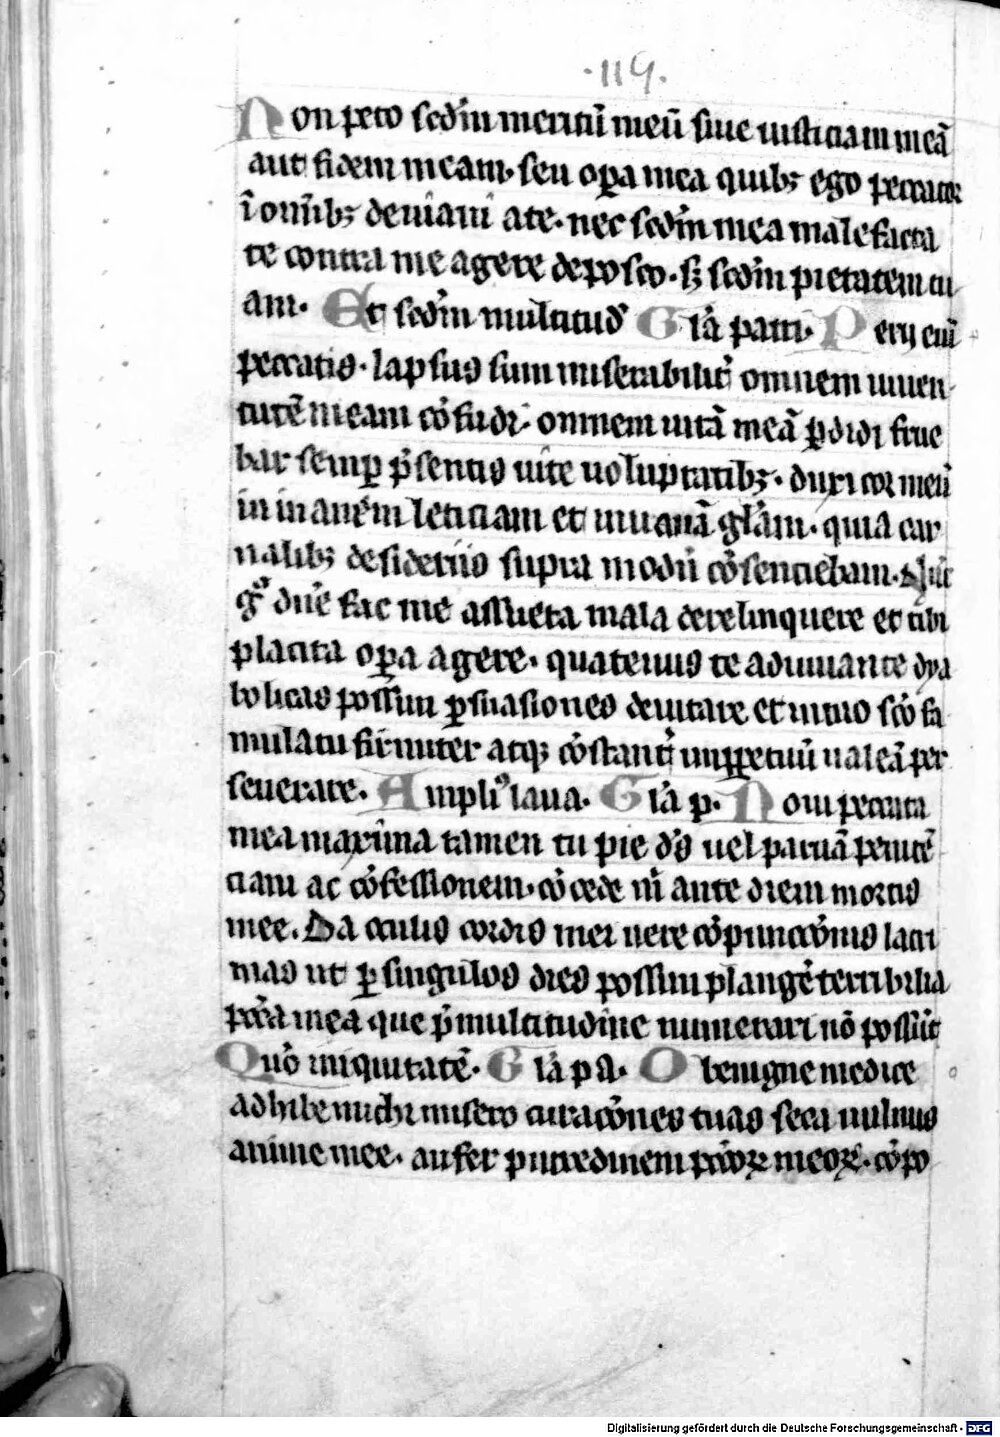 ·119·
Non peto scdm̄ meritū meū siue iusticiam meā
aut fidem meam· seu oꝑa mea quibꝫ ego peccator
ī om̄ibꝫ deuiaui a te· nec scdm̄ mea malefacta
te contra me agere deposco· sꝫ scdm̄ pietatem tu
am· Et scdm̄ multitud̄ Gl̄a patri· Perij eni̅
peccatis· lapsus sum miserabilit̄ omnem iuuen
tutē meam cōsudi· omnem uitā meā ꝑdidi frue
bar semꝑ p̄sentis uite uoluptatibꝫ· duxi cor meū
in inanem leticiam et mūanā gl̄am· quia car
nalibꝫ desideriis supra modū cōsenciebam· Nūc
gͦ dn̄e fac me assueta mala derelinquere et tibi
placita oꝑa agere· quatenus te adiuuante dya
bolicas possim ꝑsuasiones deuitare et in tuo sc̄o fa
mulatu firmiter atqꝫ cōstant̄ imꝑpetuū ualeā per
seuerare· Ampliꝰ laua· Gl̄a p· Noui peccata
mea maxima tamen tu pie d̄s uel paruā penitē
ciam ac cōfessionem· cōcede m̄ ante diem mortis
mee· Da oculis cordis mei uere cōpunccōnis lacri
mas ut ꝑ singulos dies possim plangē terribilia
pc̄ca mea que p̄ multitudine numerari nō possūt
Quō iniquitatē· Gl̄a pa· O benigne medice
adhibe michi misero curacōnes tuas seca uulnus
anime mee· aufer putredinem pc̄cōꝝ meoꝝ· cōpo
Digitalisierung gefördert durch die Deutsche Forschungsgemeinschaft - DFG